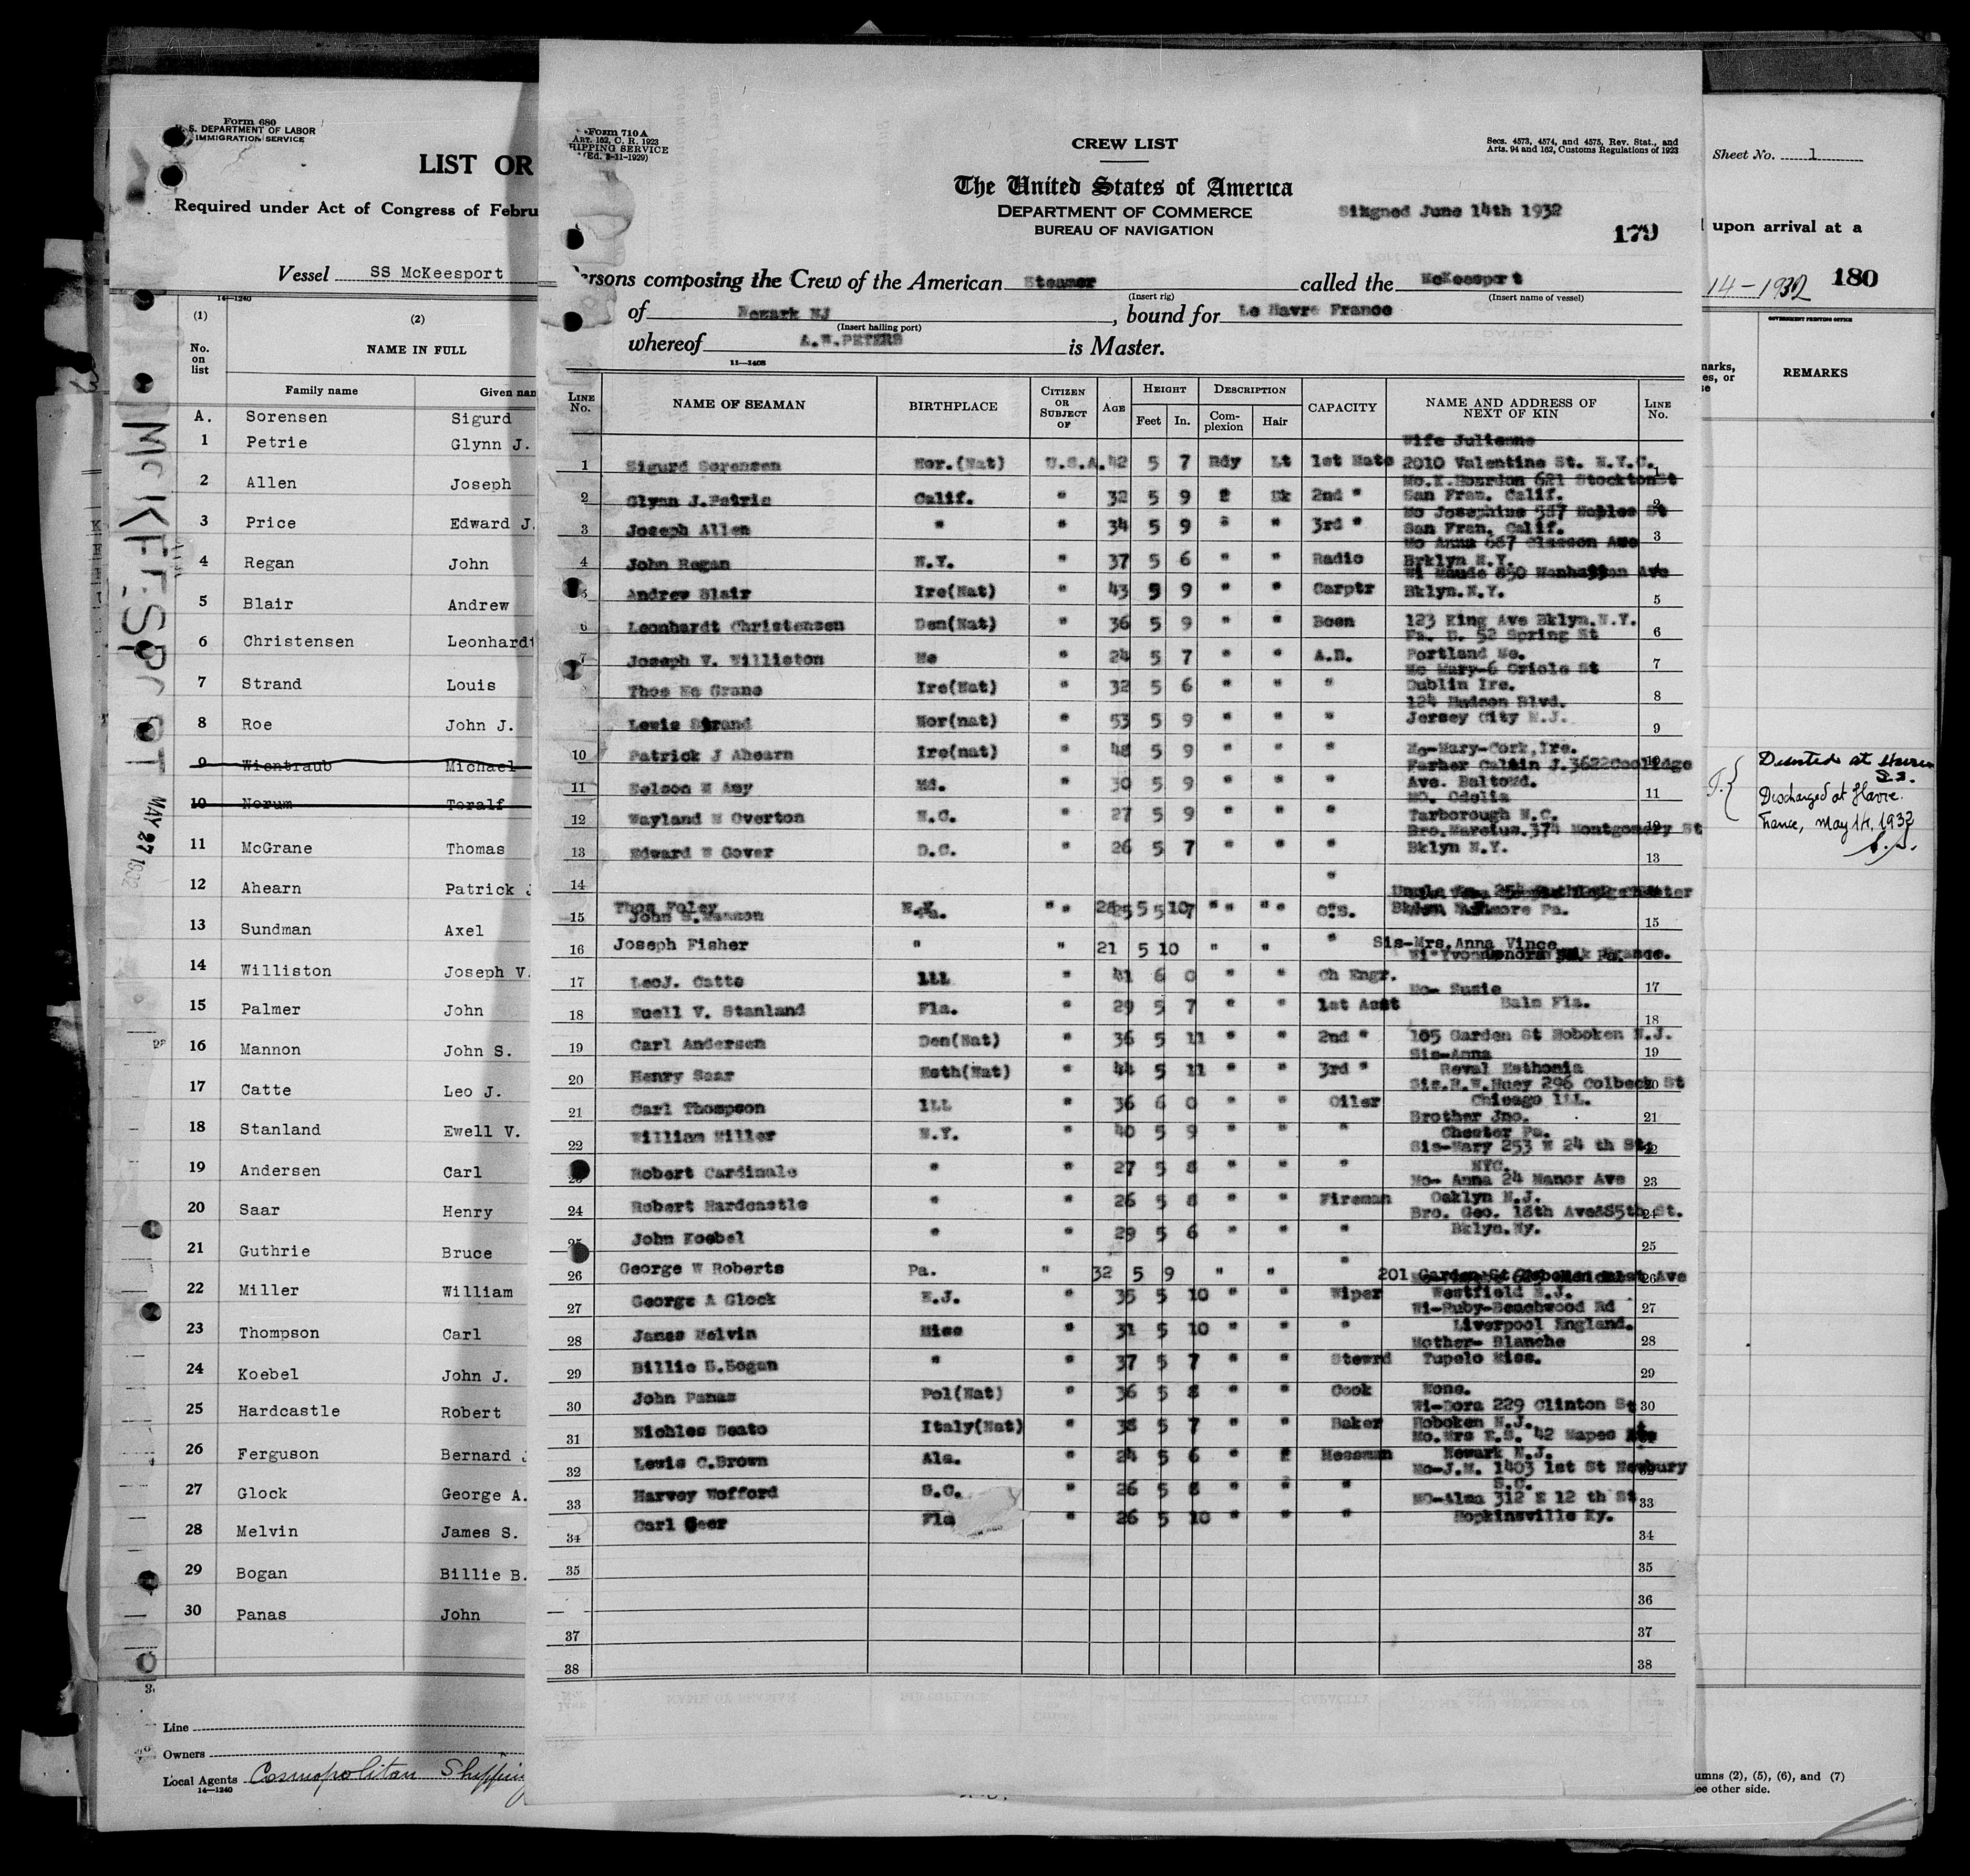 Form 680
S. DEPARTMENT OF LABOR
IMMIGRATION SERVICE
LIST OR
Required under Act of Congress of Febru
Vessel SS McKeesport
14—1240
(1) (2)
No. on list NAME IN FULL
Family name Given nam
A. Sorensen Sigurd
1 Petrie Glynn J.
2 Allen Joseph
3 Price Edward J.
4 Regan John
5 Blair Andrew
6 Christensen Leonhardt
7 Strand Louis
8 Roe John J.
9 Wientraub Michael
10 Norum Toralf
11 McGrane Thomas
12 Ahearn Patrick J
13 Sundman Axel
14 Williston Joseph V.
15 Palmer John
16 Mannon John S.
17 Catte Leo J.
18 Stanland Ewell V.
19 Andersen Carl
20 Saar Henry
21 Guthrie Bruce
22 Miller William
23 Thompson Carl
24 Koebel John J.
25 Hardcastle Robert
26 Ferguson Bernard J
27 Glock George A.
28 Melvin James S.
29 Bogan Billie B.
30 Panas John
Line
Owners
Local Agents Cosmopolitan Shipping
14—1240
McKEESPORT
MAY 27 1932
Form 710 A
ART. 162, C. R. 1923
HIPPING SERVICE
(Ed. 3-11-1929)
CREW LIST
Secs. 4573, 4574, and 4575, Rev. Stat., and
Arts. 94 and 162, Customs Regulations of 1923
The United States of America
DEPARTMENT OF COMMERCE
BUREAU OF NAVIGATION
Sikgned June 14th 1932
179
ersons composing the Crew of the American Steamer called the McKeesport
(Insert rig) (Insert name of vessel)
of Newark NJ, bound for Le Havre France
(Insert hailing port)
whereof A.W.PETERS is Master.
11—1408
LINE No. NAME OF SEAMAN BIRTHPLACE CITIZEN OR SUBJECT OF AGE HEIGHT DESCRIPTION CAPACITY NAME AND ADDRESS OF NEXT OF KIN LINE No.
Feet In. Complexion Hair
Wife Julienne
1 Sigurd Sorensen Nor.(Nat) U.S.A. 42 5 7 Rdy Lt 1st Mate 2010 Valentine St. N.Y.C. 1
Mo.K.Reardon 621 Stockton St
2 Glynn J.Petrie Calif. " 32 5 9 " Bk 2nd " San Fran. Calif. 2
Mo Josephine 587 Naples St
3 Joseph Allen " " 34 5 9 " " 3rd " San Fran. Calif. 3
Mo Anna 667 Classon Ave
4 John Regan N.Y. " 37 5 6 " " Radio Brklyn N.Y. 4
Wi Maude 850 Manhattan Ave
5 Andrew Blair Ire(Nat) " 43 5 9 " " Carptr Bklyn.N.Y. 5
6 Leonhardt Christensen Den(Nat) " 36 5 9 " " Bosn 123 King Ave Bklyn.N.Y. 6
Fa. D. 52 Spring St
7 Joseph V. Williston Me " 24 5 7 " " A.B. Portland Me. 7
Mo Mary-6 Oriole St
Thos Mc Grane Ire(Nat) " 32 5 6 " " " Dublin Ire. 8
124 Hudson Blvd.
Lewis Strand Nor(nat) " 53 5 9 " " " Jersey City N.J. 9
10 Patrick J Ahearn Ire(nat) " 48 5 9 " " " Mo-Mary-Cork,Ire. 10
Farher Caltin J.3622Coolidge
11 Nelson M Amy Md. " 30 5 9 " " " Ave. BaltoMd. 11
MO. Odelia
12 Wayland M Overton N.C. " 27 5 9 " " " Tarborough N.C. 12
Bro.Marcius.374 Montgomery St
13 Edward W Gover D.C. " 26 5 7 " " " Bklyn N.Y. 13
14 "
15 Thos Foley John S.Mannon N.Y. Pa. " " 5 5 10 7 " " " " O.S. Ardmore Pa. 15
16 Joseph Fisher " " 21 5 10 " " " Sis-Mrs.Anna Vince
Donora Pa.
17 LeoJ. Catte Ill " 41 6 0 " " Ch Engr. 17
Mo- Susie
18 Euell V. Stanland Fla. " 29 5 7 " " 1st Asst Balm Fla. 18
19 Carl Andersen Den(Nat) " 36 5 11 " " 2nd " 105 Garden St Hoboken N.J. 19
Sis-Anna
20 Henry Saar Esth(Nat) " 44 5 11 " " 3rd " Reval Esthonia 20
Sis.R.W.Huey 296 Colbeck St
21 Carl Thompson Ill " 36 6 0 " " Oiler Chicago Ill. 21
Brother Jno.
22 William Miller N.Y. " 40 5 9 " " " Chester Pa. 22
Sis-Mary 253 W 24 th St.
23 Robert Cardinale " " 27 5 8 " " " NYC. 23
Mo- Anna 24 Manor Ave
24 Robert Hardcastle " " 26 5 8 " " Fireman Oaklyn N.J. 24
Bro. Geo. 18th Ave&85th St.
25 John Koebel " " 29 5 6 " " " Bklyn.Ny. 25
26 George W Roberts Pa. " 32 5 9 " " " 201 Garden St Hoboken 26
27 George A Glock N.J. " 35 5 10 " " Wiper Westfield N.J. 27
Wi-Ruby-Beachwood Rd
28 James Melvin Miss " 31 5 10 " " " Liverpool England. 28
Mother- Blanche
29 Billie B.Bogan " " 37 5 7 " " Stewrd Tupelo Miss. 29
30 John Panas Pol(Nat) " 36 5 8 " " Cook None. 30
Wi-Dora 229 Clinton St
31 Nichles Deato Italy(Nat) " 38 5 7 " " Baker Hoboken N.J.
Mo.Mrs E.S. 42 Mapes Ave
32 Lewis C.Brown Ala. " 24 5 6 " " Messman Newark N.J. 32
Mo-J.M. 1403 1st St Newbury
33 Harvey Wofford S.C. " 26 5 8 " " " S.C. 33
MO-Alma 312 E 12 th St
34 Carl Geer Fla " 26 5 10 " " " Hopkinsville Ky. 34
35 35
36
37 37
38 38
Sheet No. 1
upon arrival at a
14-1932 180
GOVERNMENT PRINTING OFFICE
marks, es, or se REMARKS
Deserted at Havre
Discharged at Havre.
France, May 14, 1932
umns (2), (5), (6), and (7)
ee other side.